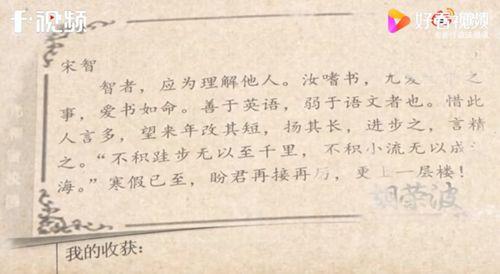 千视频
好看视频
宋智
智者，应为理解他人。汝嗜书，尤爱之
事，爱书如命。善于英语，弱于语文者也。惜此
人言多，望来年改其短，扬其长，进步之，言精
之。“不积跬步无以至千里，不积小流无以成
海。”寒假已至，盼君再接再厉，更上一层楼！
胡荣波
我的收获：